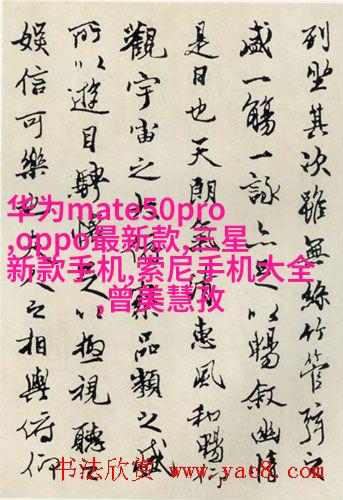 列坐其次雖無絲竹管弦之
盛一觴一詠亦足以暢敘幽情
是日也天朗氣清惠風和暢仰
觀宇宙之大俯察品類之盛
所以遊目騁懷足以極視聽之
娛信可樂也夫人之相與俯仰
华为mate50pro
,oppo最新款,三星
新款手机,索尼手机大全
,曾美慧孜
书法欣赏 www.yac8.com